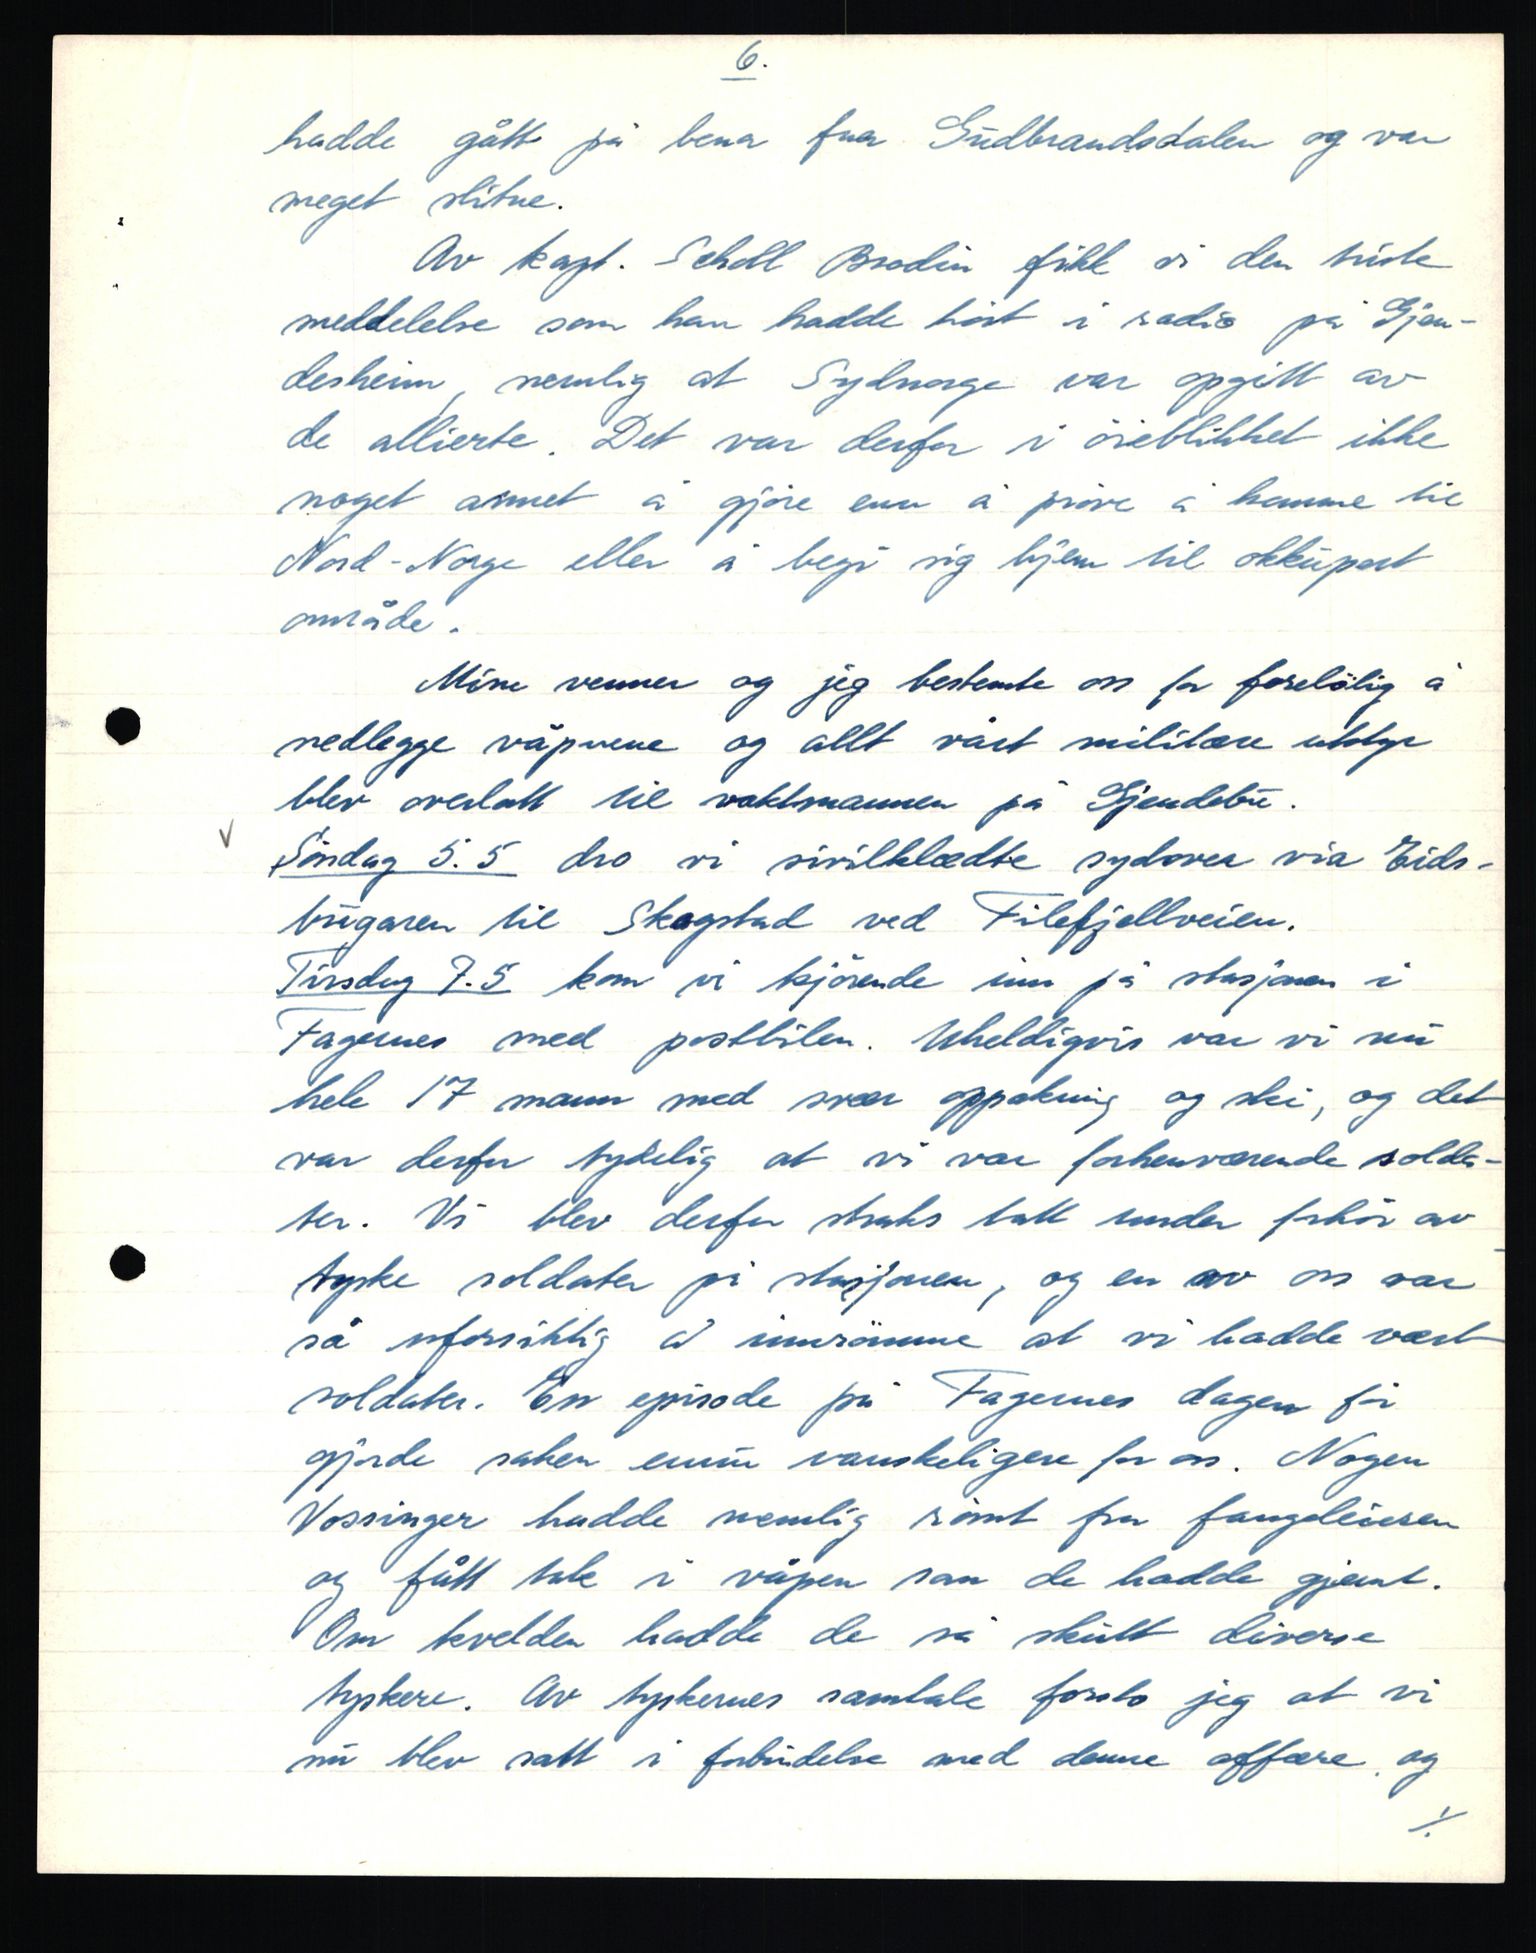 6.
hadde gått på bena fra Gudbrandsdalen og var
meget slitne.
Av kapt. Scholl Brodin fikk vi den triste
meddelelse som han hadde hört i radio på Gjen-
desheim, nemlig at Sydnorge var opgitt av
de allierte. Det var derfor i öieblikket ikke
noget annet å gjöre enn å pröve å komme til
Nord-Norge eller å begi sig hjem til okkupert
område.
Mine venner og jeg bestemte oss for forelöbig å
nedlegge våpnene og allt vårt militære utstyr
blev overlatt til vaktmannen på Gjendebu.
V Söndag 5.5 dro vi sivilklædte sydover via Eids-
bugaren til Skogstad ved Filefjellveien.
Tirsdag 7.5 kom vi kjörende inn på stasjonen i
Fagernes med postbilen. Uheldigvis var vi nu
hele 17 mann med svær oppakning og ski, og det
var derfor tydelig at vi var forhenværende solda-
ter. Vi blev derfor straks tatt under forhör av
tyske soldater på stasjonen, og en av oss var
så uforsiktig å innrömme at vi hadde vært
soldater. En episode på Fagernes dagen för
gjorde saken ennu vanskeligere for oss. Nogen
Vossinger hadde nemlig römt fra fangeleieren
og fått tak i våpen som de hadde gjemt.
Om kvelden hadde de så skutt diverse
tyskere. Av tyskernes samtale forsto jeg at vi
nu blev satt i forbindelse med denne affære, og
./.